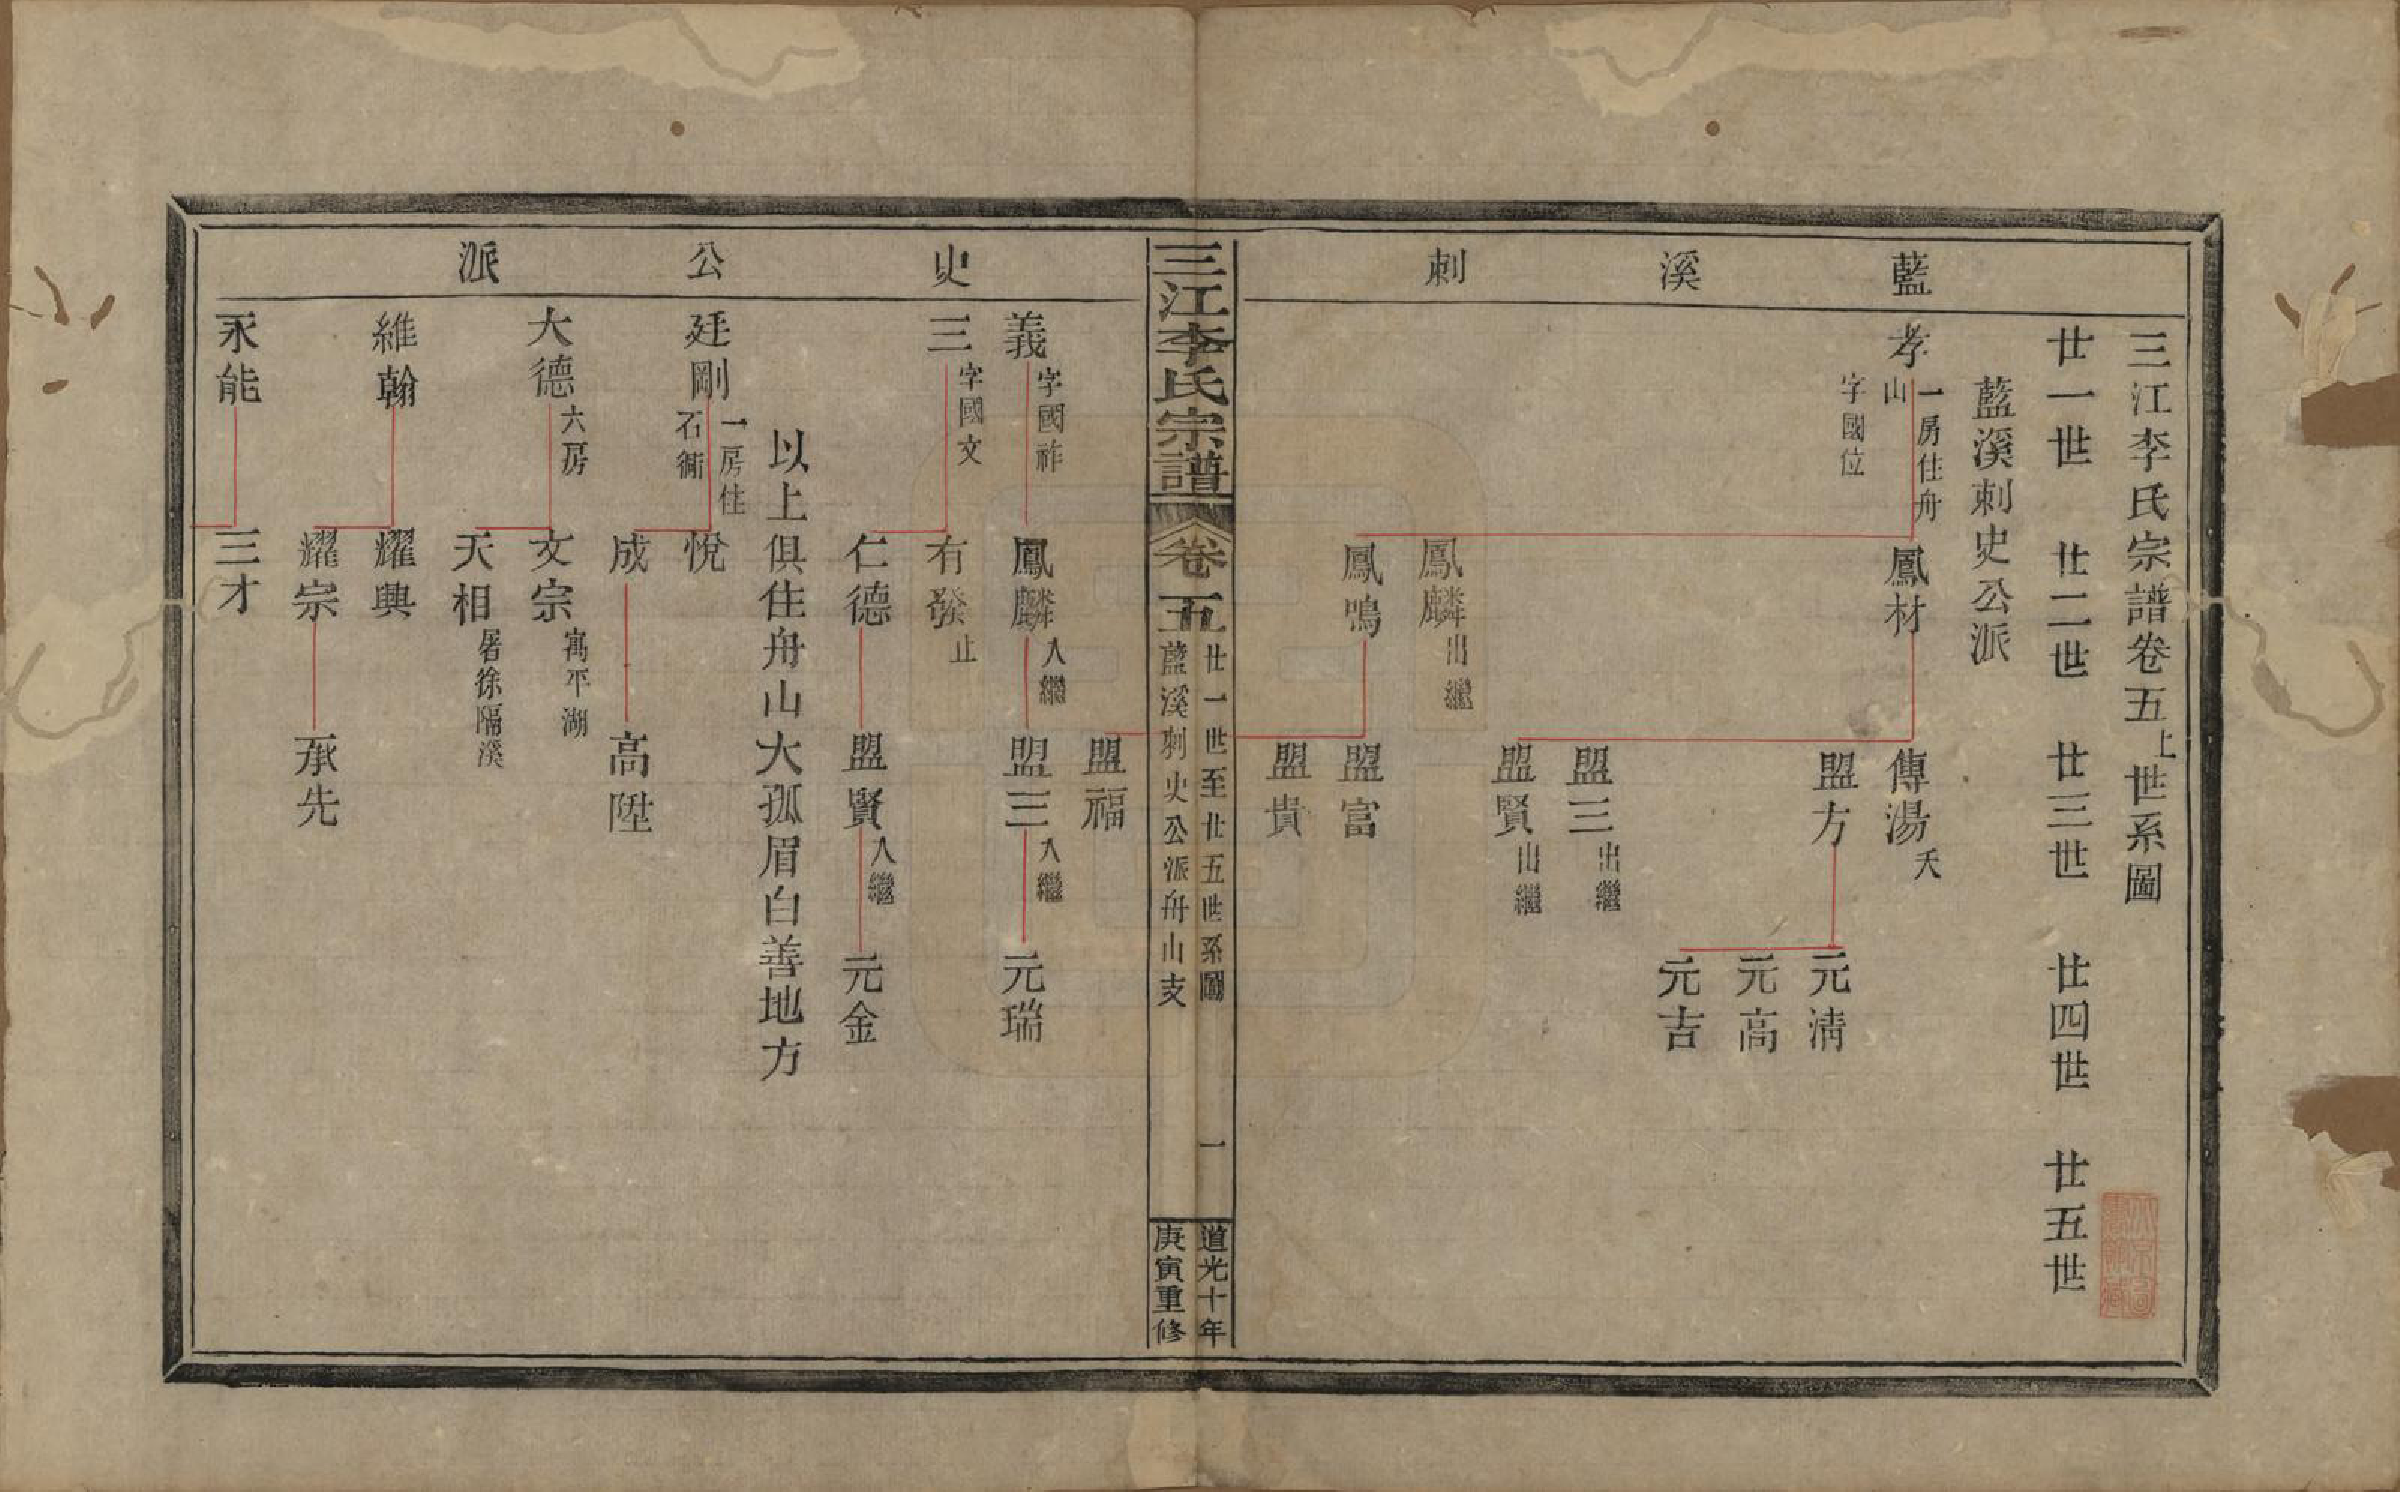 藍溪刺
三江李氏宗譜卷五上世系圖
廿一世 廿二世 廿三世 廿四世 廿五世
藍溪刺史公派
孝 一房住舟山 字國位 鳳材 傳湯 夭
盟方 元清
元高
元吉
盟三 出繼
盟賢 出繼
鳳麟 出繼
鳳鳴 盟富
盟貴
三江李氏宗譜 卷五 廿一世至廿五世系圖 藍溪刺史公派舟山支 一 道光十年庚寅重修
史公派
盟福
義 字國祚 鳳麟 入繼 盟三 入繼 元瑞
三 字國文 有發 止
仁德 盟賢 入繼 元金
以上俱住舟山大孤眉白善地方
廷剛 一房住石衕 悅
成 高陞
大德 六房 文宗 寓平湖
天相 居徐隔溪
維翰 耀興
耀宗 承先
永能 三才